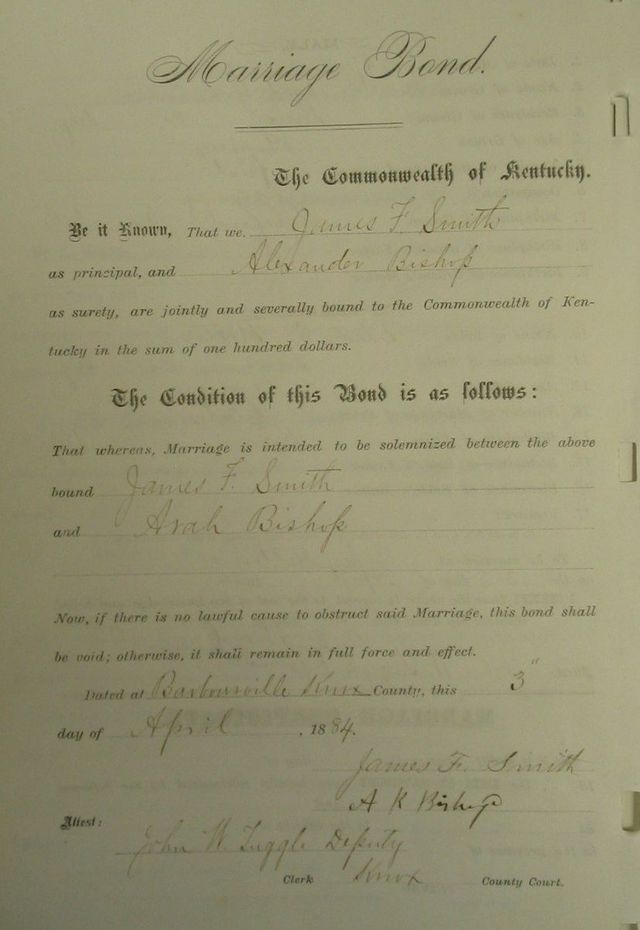 Marriage Bond.
The Commonwealth of Kentucky.
Be it Known, That we James F Smith
as principal, and Alexander Bishop
as surety, are jointly and severally bound to the Commonwealth of Ken-
tucky in the sum of one hundred dollars.
The Condition of this Bond is as follows:
That whereas, Marriage is intended to be solemnized between the above
bound James F. Smith
and Arah Bishop
Now, if there is no lawful cause to obstruct said Marriage, this bond shall
be void; otherwise, it shall remain in full force and effect.
Dated at Barbourville Knox County, this 3"
day of April, 1884.
James F. Smith
A K Bishop
Attest:
John W. Tuggle Deputy
Clerk Knox County Court.